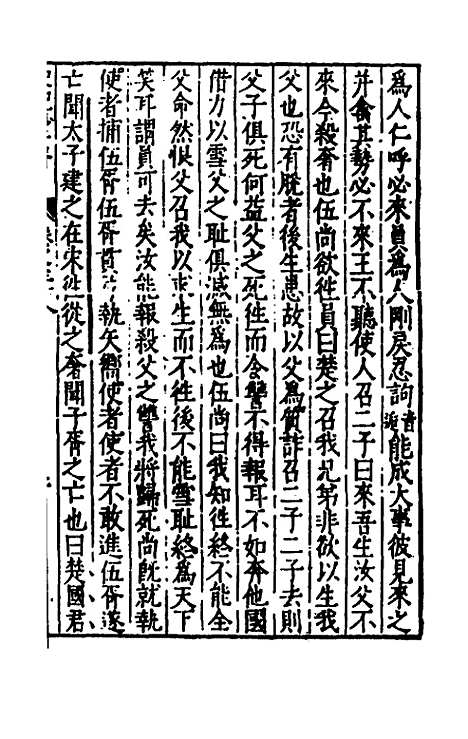 爲人仁呼必來員爲人剛戾忍訽音逅能成大事彼見來之
并禽其勢必不來王不聽使人召二子曰來吾生汝父不
來今殺奢也伍尚欲徃員曰楚之召我兄弟非欲以生我
父也恐有脫者後生患故以父爲質詐召二子二子去則
父子俱死何益父之死徃而令讐不得報耳不如奔他國
借力以雪父之耻俱滅無爲也伍尚曰我知徃終不能全
父命然恨父召我以求生而不徃後不能雪耻終爲天下
笑耳謂員可去矣汝能報殺父之讐我將歸死尚旣就執
使者捕伍胥伍胥貫弓執矢嚮使者使者不敢進伍胥遂
亡聞太子建之在宋徃從之奢聞子胥之亡也曰楚國君